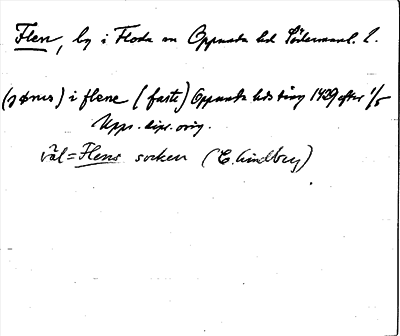 Flen, by i Floda sn Oppunda hd Södermanl. l.
(jønes) i flene (faste) Oppunda hds ting 1439 efter 1/5
Upps. dipl. orig.
väl = Flens socken (E. Lindberg)